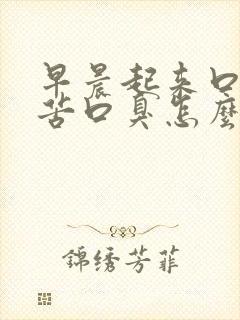 早晨起来口
苦口臭怎麼
錦绣芳菲